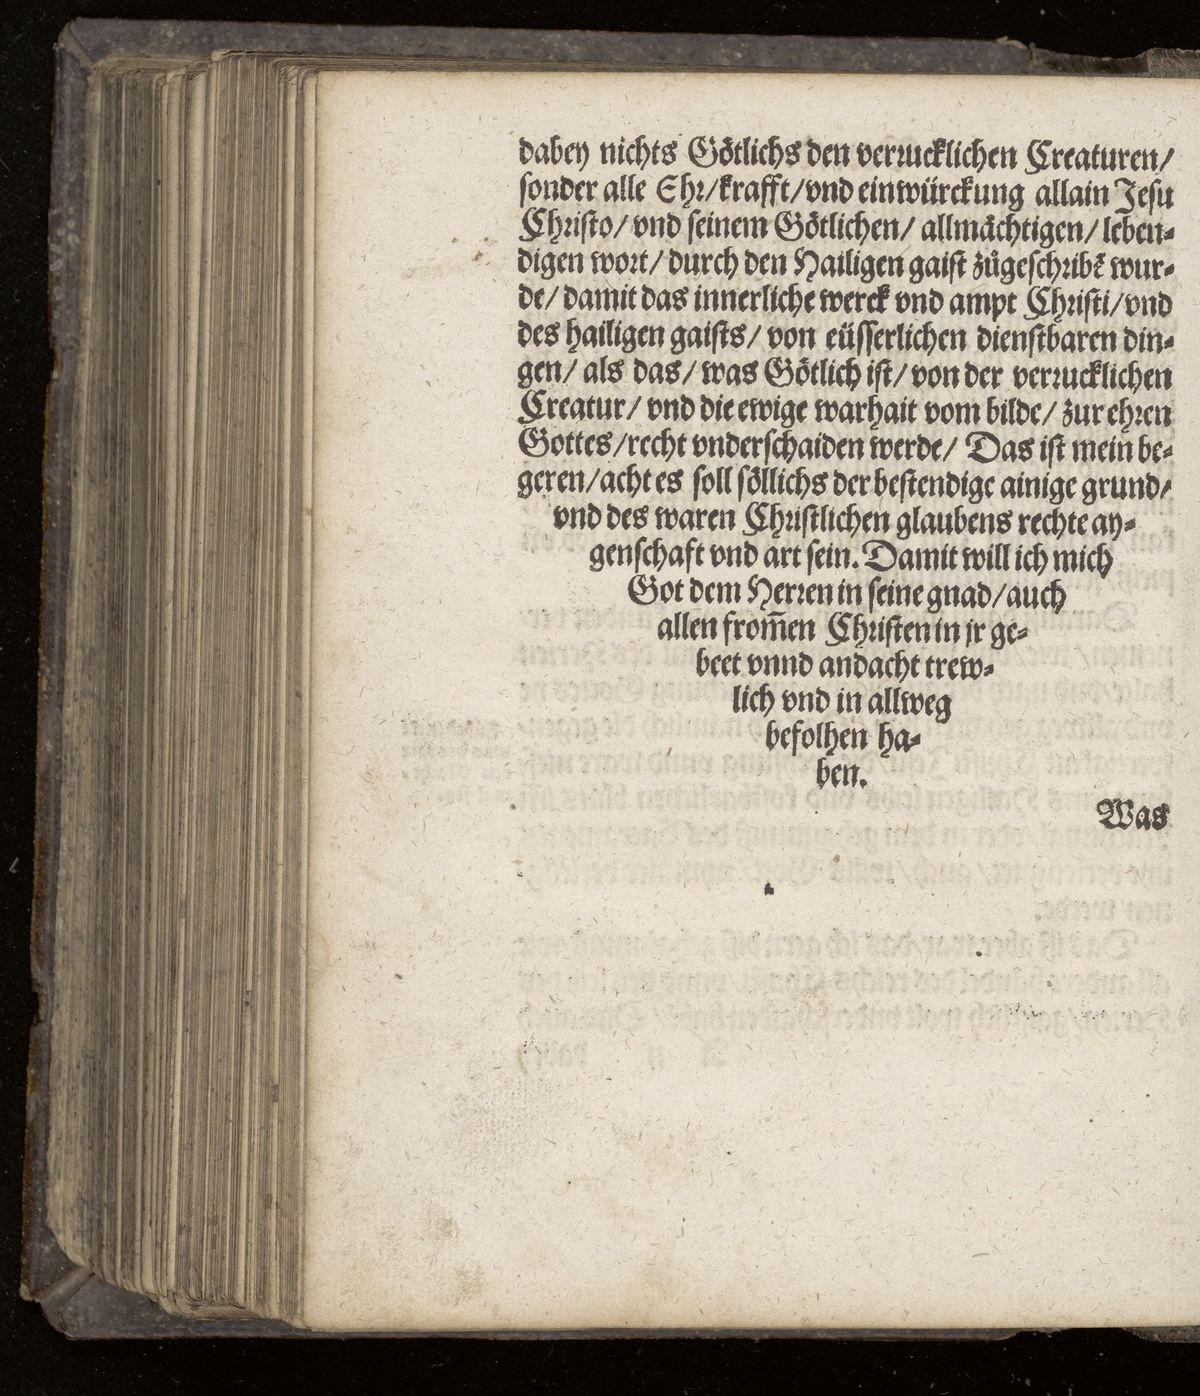 dabey nichts Götlichs den verrucklichen Creaturen/
sonder alle Ehr/krafft/vnd einwürckung allain Jesu
Christo/ vnd seinem Götlichen/ allmächtigen/ leben⸗
digen wort/ durch den Hailigen gaist zůgeschribē wur⸗
de/ damit das innerliche werck vnd ampt Christi/vnd
des hailigen gaists/ von eüsserlichen dienstbaren din⸗
gen/ als das/ was Götlich ist/ von der verrucklichen
Creatur/ vnd die ewige warhait vom bilde/ zur ehren
Gottes/recht vnderschaiden werde/ Das ist mein be⸗
geren/acht es soll söllichs der bestendige ainige grund/
vnd des waren Christlichen glaubens rechte ay⸗
genschaft vnd art sein. Damit will ich mich
Got dem Herren in seine gnad/auch
allen from̄en Christen in jr ge⸗
beet vnnd andacht trew⸗
lich vnd in allweg
befolhen ha⸗
ben.
Was